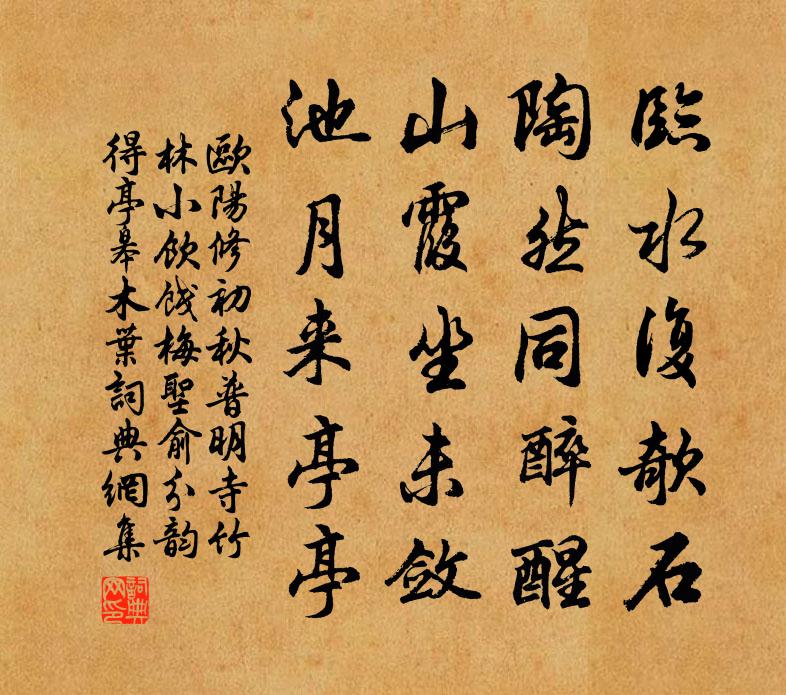 臨水復欹石
陶然同醉醒
山霞坐未斂
池月来亭亭
歐陽修初秋普明寺竹
林小飲餞梅聖俞分韵
得亭皋木葉詞典網集
詞典
网印